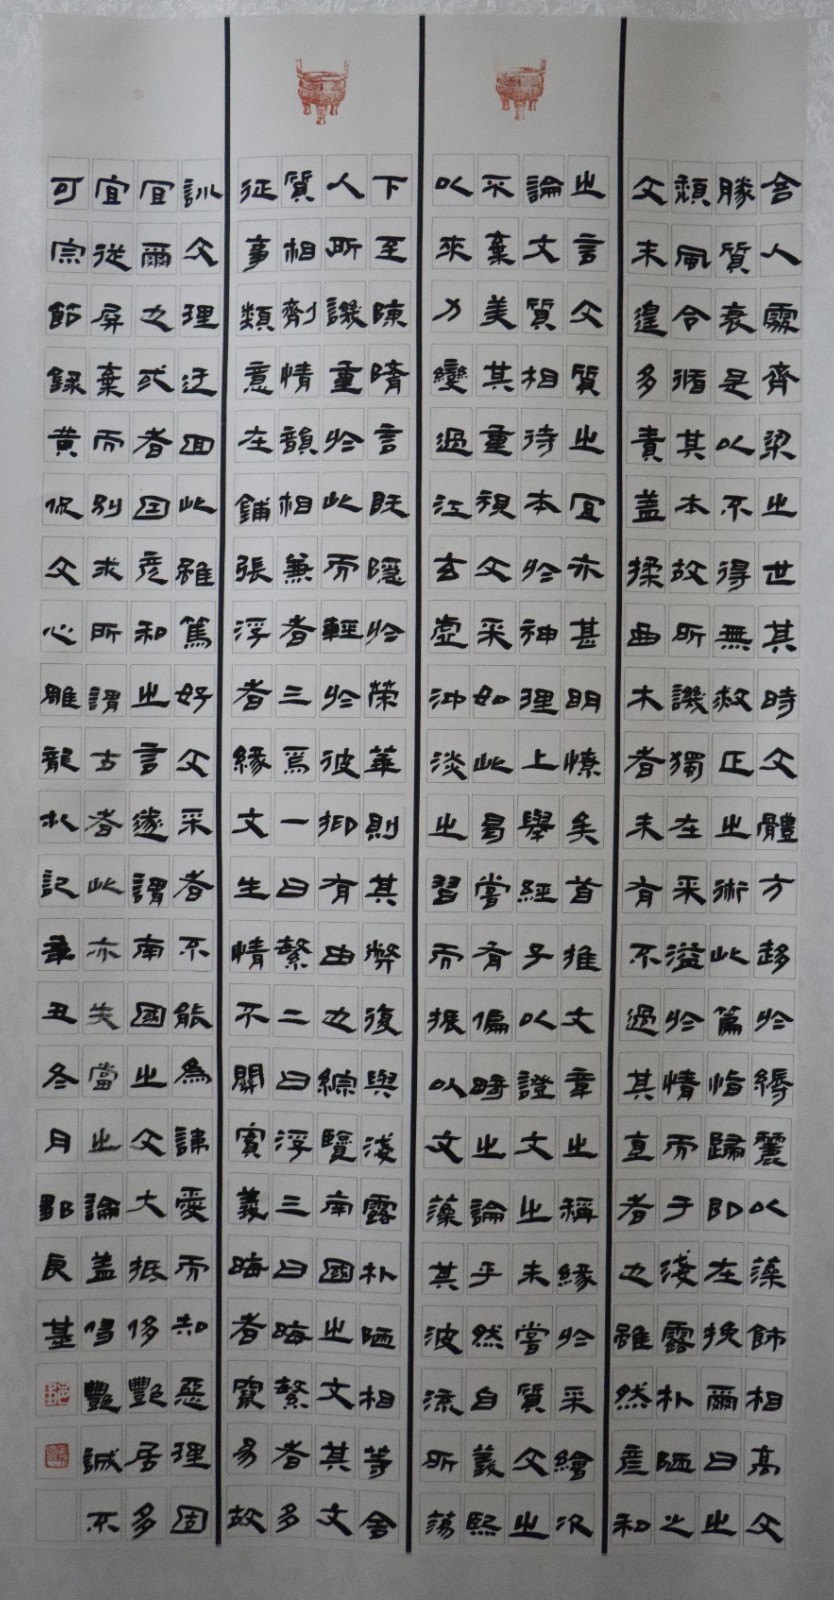 舍人處齊梁之世其時文體方趍於縟麗以藻飾相高文
勝質衰是以不得無救正之術此篇恉歸即在挽爾日之
頹風令循其本故所譏獨在采溢於情而于淺露朴陋之
文未遑多責蓋揉曲木者未有不過其直者也雖然彥和
之言文質之宜亦甚明憭矣首推文章之稱緣於采繪次
論文質相待本於神理上舉經子以證文之未嘗質文之
不棄美其重視文采如此曷嘗有偏畸之論乎然自義熙
以來力變過江玄虛沖淡之習而振以文藻其波流所蕩
下至陳隋言既隱於榮華則其弊復與淺露朴陋相等舍
人所譏重於此而輕於彼抑有由也綜覽南國之文其文
質相劑情韻相兼者三焉一曰繁二曰浮三曰晦繁者多
征事類意在鋪張浮者緣文生情不關實義晦者竄易故
訓文理迂回此雖篤好文采者不能為諱愛而知惡理固
宜爾也或者因彥和之言遂謂南國之文大抵侈艷居多
宜從屏棄而別求所謂古者此亦失當之論蓋侈艷誠不
可宗節錄黃侃文心雕龍札記辛丑冬月鄭良基